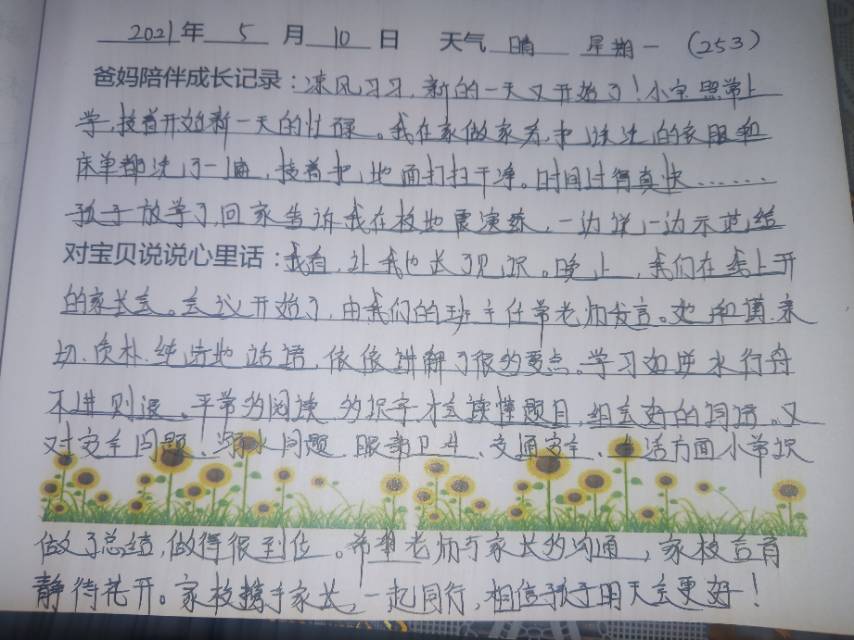 2021年 5 月 10 日 天气 晴 星期一 (253)
爸妈陪伴成长记录:凉风习习,新的一天又开始了!小宝照常上
学,接着开始新一天的忙碌。我在家做家务,把该洗的衣服和
床单都洗了一遍,接着把地面打扫干净。时间过得真快……
孩子放学了,回家告诉我在校地震演练,一边说一边示范给
对宝贝说说心里话:我看,让我也长了见识。晚上,我们在线上开
的家长会。会议开始了,由我们的班主任常老师发言。她和蔼、亲
切、质朴、纯洁地话语,讲解了很多要点。学习如逆水行舟
不进则退。平常多阅读 多识字,才会读懂题目,组会好的词语。又
对安全问题、溺水问题、服饰卫生、交通安全、生活方面小常识
做了总结,做得很到位。希望老师与家长多沟通,家校合育
静待花开。家校携手家长,一起同行,相信孩子明天会更好!